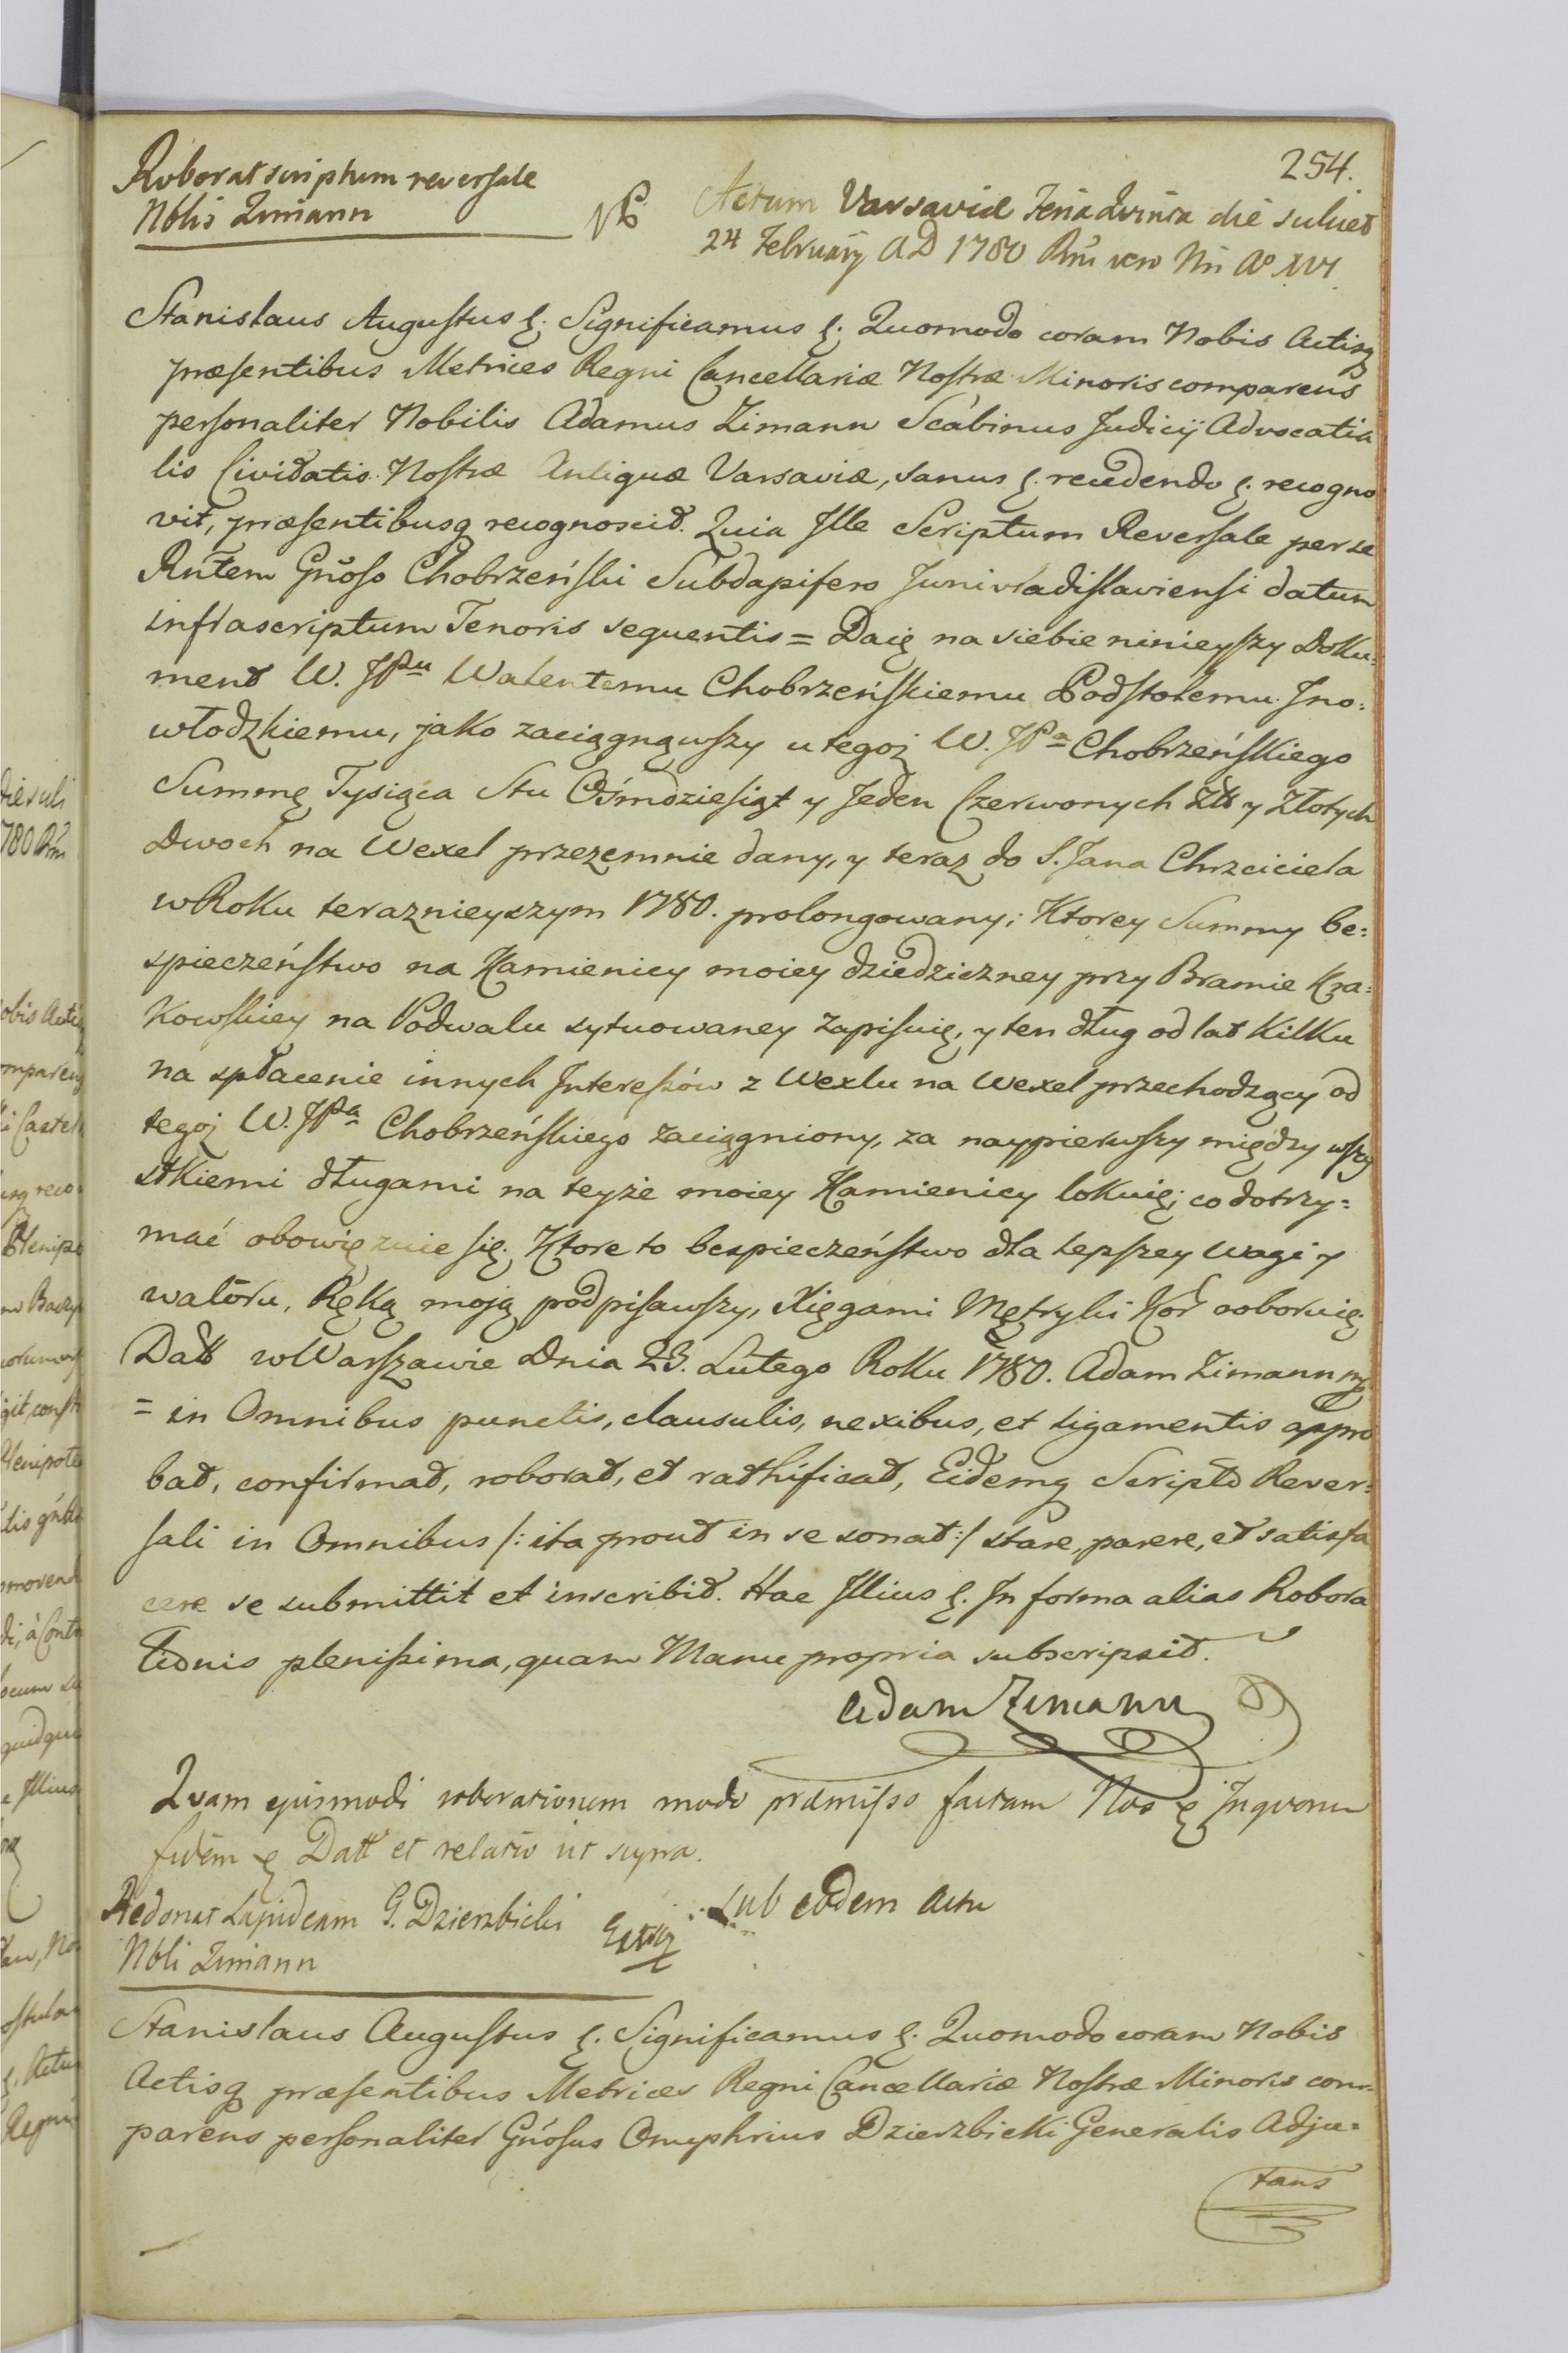 254.
Roborat scriptum reversale
Nblis Zimann
Actum Varsaviæ Feria quinta die scilicet
24 February AD 1780 Rni vero Nri Aº XVI.
Stanislaus Augustus &. Significamus &. Quomodo coram Nobis Actisq
præsentibus Metrices Regni Cancellariæ Nostræ Minoris comparens
personaliter Nobilis Adamus Zimann Scabinus Judicij Advocatia
lis Civitatis Nostræ Antiquæ Varsaviæ, sanus &. recedendo &. recogno
vit, præsentibusq recognoscit. Quia Ille Scriptum Reversale per se
Rñtem Gñoso Chobrzeński Subdapifero Junivladislaviensi datum
infrascriptum Tenoris sequentis = Daię na siebie ninieyszy Doku=
ment W. JPnu Walentemu Chobrzeńskiemu Podstolemu Jno=
włodzkiemu, jako zaciągnąwszy u tegoż W. JPa Chobrzeńskiego
Summę Tysiąca Stu Ośmdziesiąt y Jeden Czerwonych Złł y Złotych
Dwoch na Wexel przezemnie dany, y teraz do S. Jana Chrzciciela
w Roku teraznieyszym 1780. prolongowany; Ktorey Summy be=
spieczeństwo na Kamienicy moiey dziedziczney przy Bramie Kra=
kowskiey na Podwalu sytuowaney zapisuię, y ten dług od lat Kilku
na spłacenie innych Interessów z Wexlu na Wexel przechodzący od
tegoż W. JPa Chobrzeńskiego zaciągniony, za naypierwszy między wszy
stkiemi długami na teyże moiey Kamienicy lokuię; co dotrzy=
mać obowięzuie się. Ktore to bespieczeństwo dla lepszey wagi y
waloru, Ręką moią podpisawszy, Xięgami Mętryki Kor roboruię.
Datt w Warszawie Dnia 23. Lutego Roku 1780. Adam Zimann mp
= in Omnibus punctis, clausulis, nexibus, et ligamentis appro
bat, confirmat, roborat, et rathificat, Eidemq Scripto Rever=
sali in Omnibus /: ita prout in se sonat :/ stare, parere, et satisfa
cere se submittit et inscribit. Hac Illius &. In forma alias Robora
tionis plenissima, quam Manu propria subscripsit.
Adam Zimann
Quam ejusmodi roborationem modo præmisso factam Nos & Inquorum
fidem & Datt et relatio ut supra.
Redonat Lapideam G. Dzierzbicki
Nbli Zimann
Sub eodem Actu
Stanislaus Augustus &. Significamus &. Quomodo coram Nobis
Actisq præsentibus Metrices Regni Cancellariæ Nostræ Minoris com=
parens personaliter Gñosus Onuphrius Dzierzbicki Generalis Adju=
tans